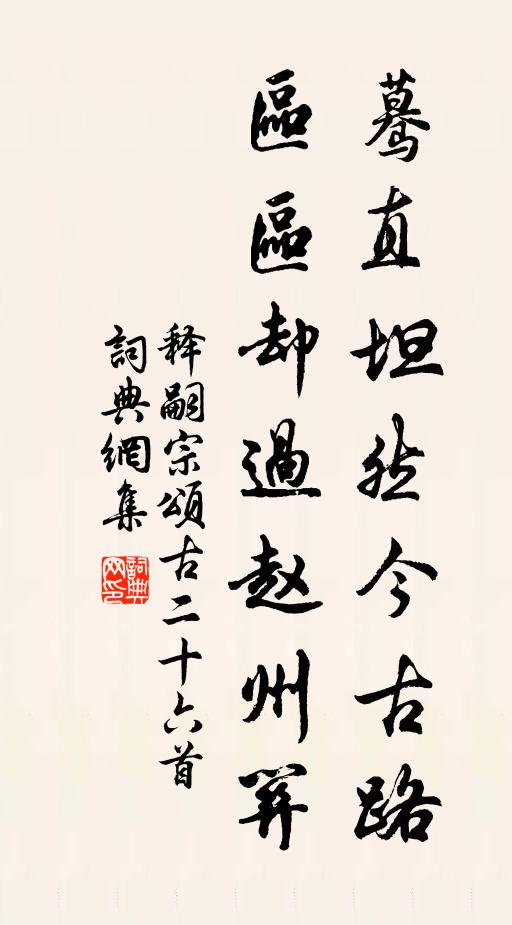 驀直坦然今古路
區區却過赵州關
释嗣宗頌古二十六首
詞典網集
詞典网印